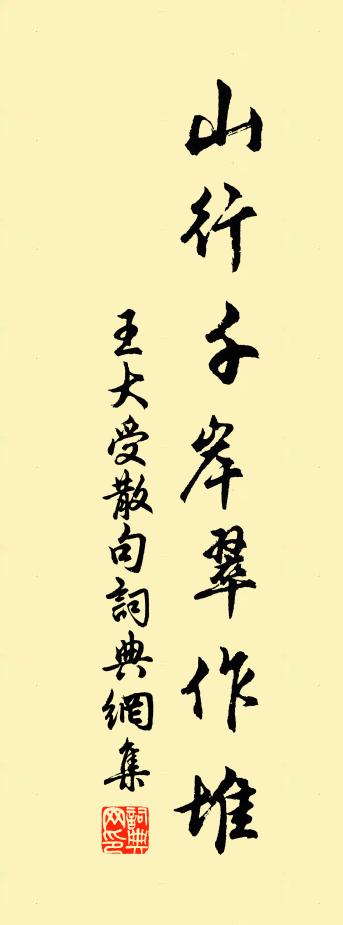 山行千岸翠作堆
王大受散句詞典網集
詞典網印